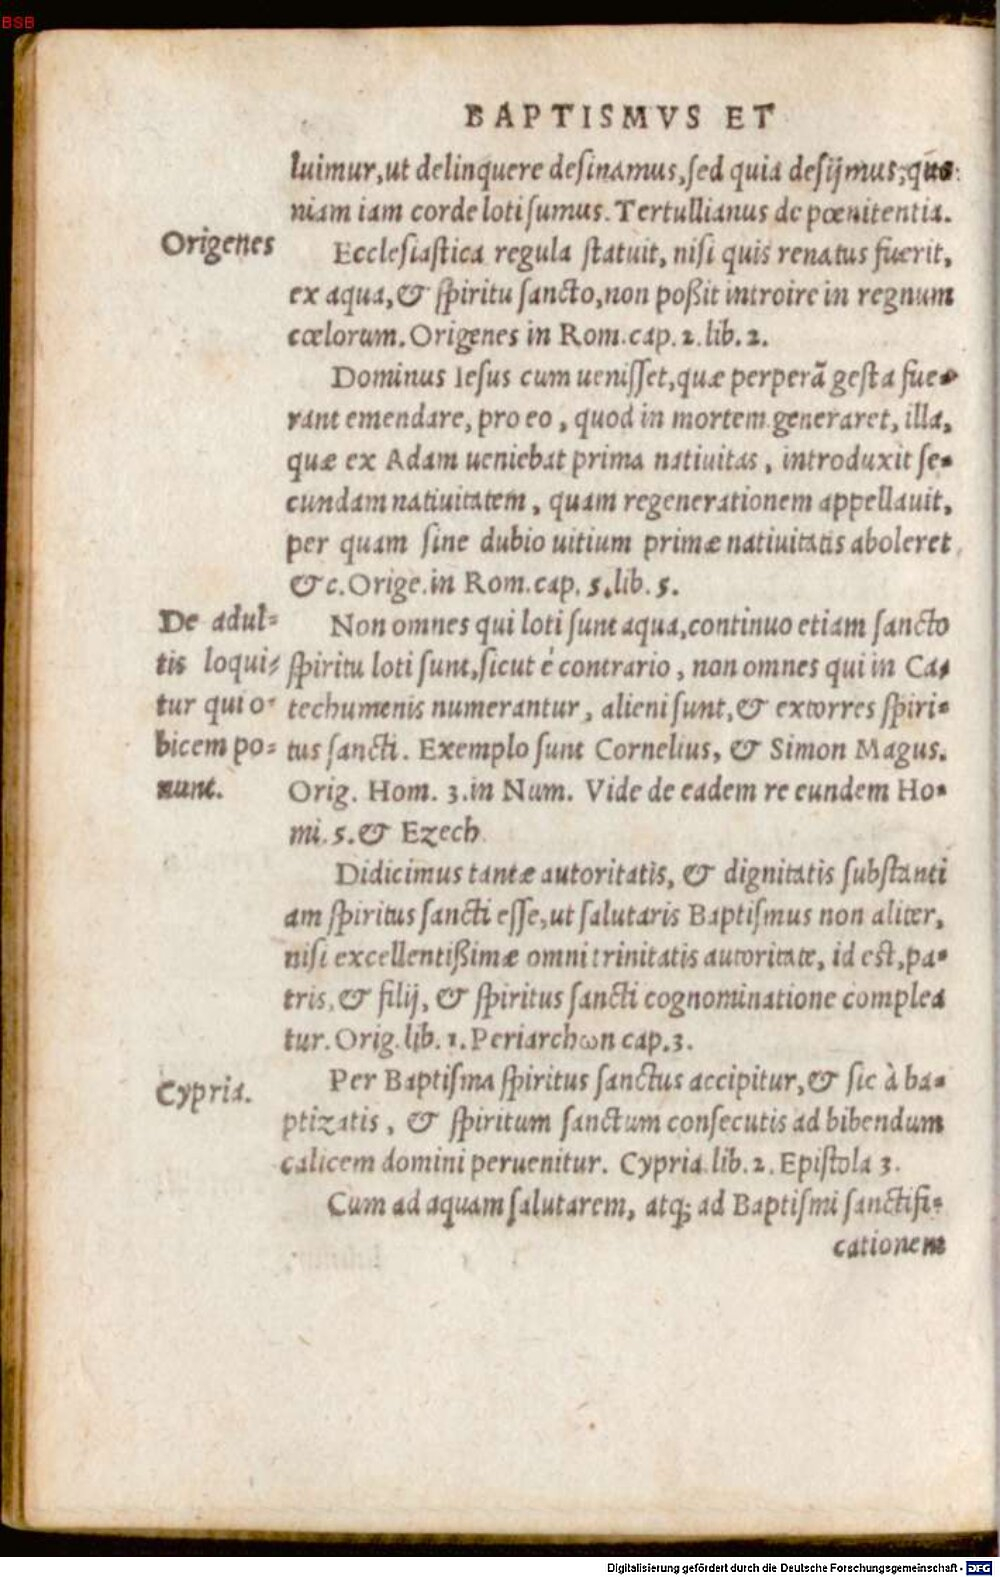 BSB
BAPTISMVS ET
luimur, ut delinquere desinamus, sed quia desijmus, quo
niam iam corde loti sumus. Tertullianus de pœnitentia.
Origenes
Ecclesiastica regula statuit, nisi quis renatus fuerit,
ex aqua, & spiritu sancto, non poßit introire in regnum
cœlorum. Origenes in Rom. cap. 2. lib. 2.
Dominus Iesus cum uenisset, quæ perperã gesta fue-
rant emendare, pro eo, quod in mortem generaret, illa,
quæ ex Adam ueniebat prima natiuitas, introduxit se-
cundam natiuitatem, quam regenerationem appellauit,
per quam sine dubio uitium primæ natiuitatis aboleret,
&c. Orige. in Rom. cap. 5. lib. 5.
De adul=
tis loqui=
tur qui o=
bicem po=
nunt.
Non omnes qui loti sunt aqua, continuo etiam sancto
spiritu loti sunt, sicut è contrario, non omnes qui in Ca-
techumenis numerantur, alieni sunt, & extorres spiri-
tus sancti. Exemplo sunt Cornelius, & Simon Magus.
Orig. Hom. 3. in Num. Vide de eadem re eundem Ho-
mi. 5. & Ezech.
Didicimus tantæ autoritatis, & dignitatis substanti
am spiritus sancti esse, ut salutaris Baptismus non aliter,
nisi excellentißimæ omni trinitatis autoritate, id est, pa-
tris, & filij, & spiritus sancti cognominatione complea
tur. Orig. lib. 1. Periarchωn cap. 3.
Cypria.
Per Baptisma spiritus sanctus accipitur, & sic à ba-
ptizatis, & spiritum sanctum consecutis ad bibendum
calicem domini peruenitur. Cypria. lib. 2. Epistola 3.
Cum ad aquam salutarem, atq; ad Baptismi sanctifi-
cationem
Digitalisierung gefördert durch die Deutsche Forschungsgemeinschaft - DFG